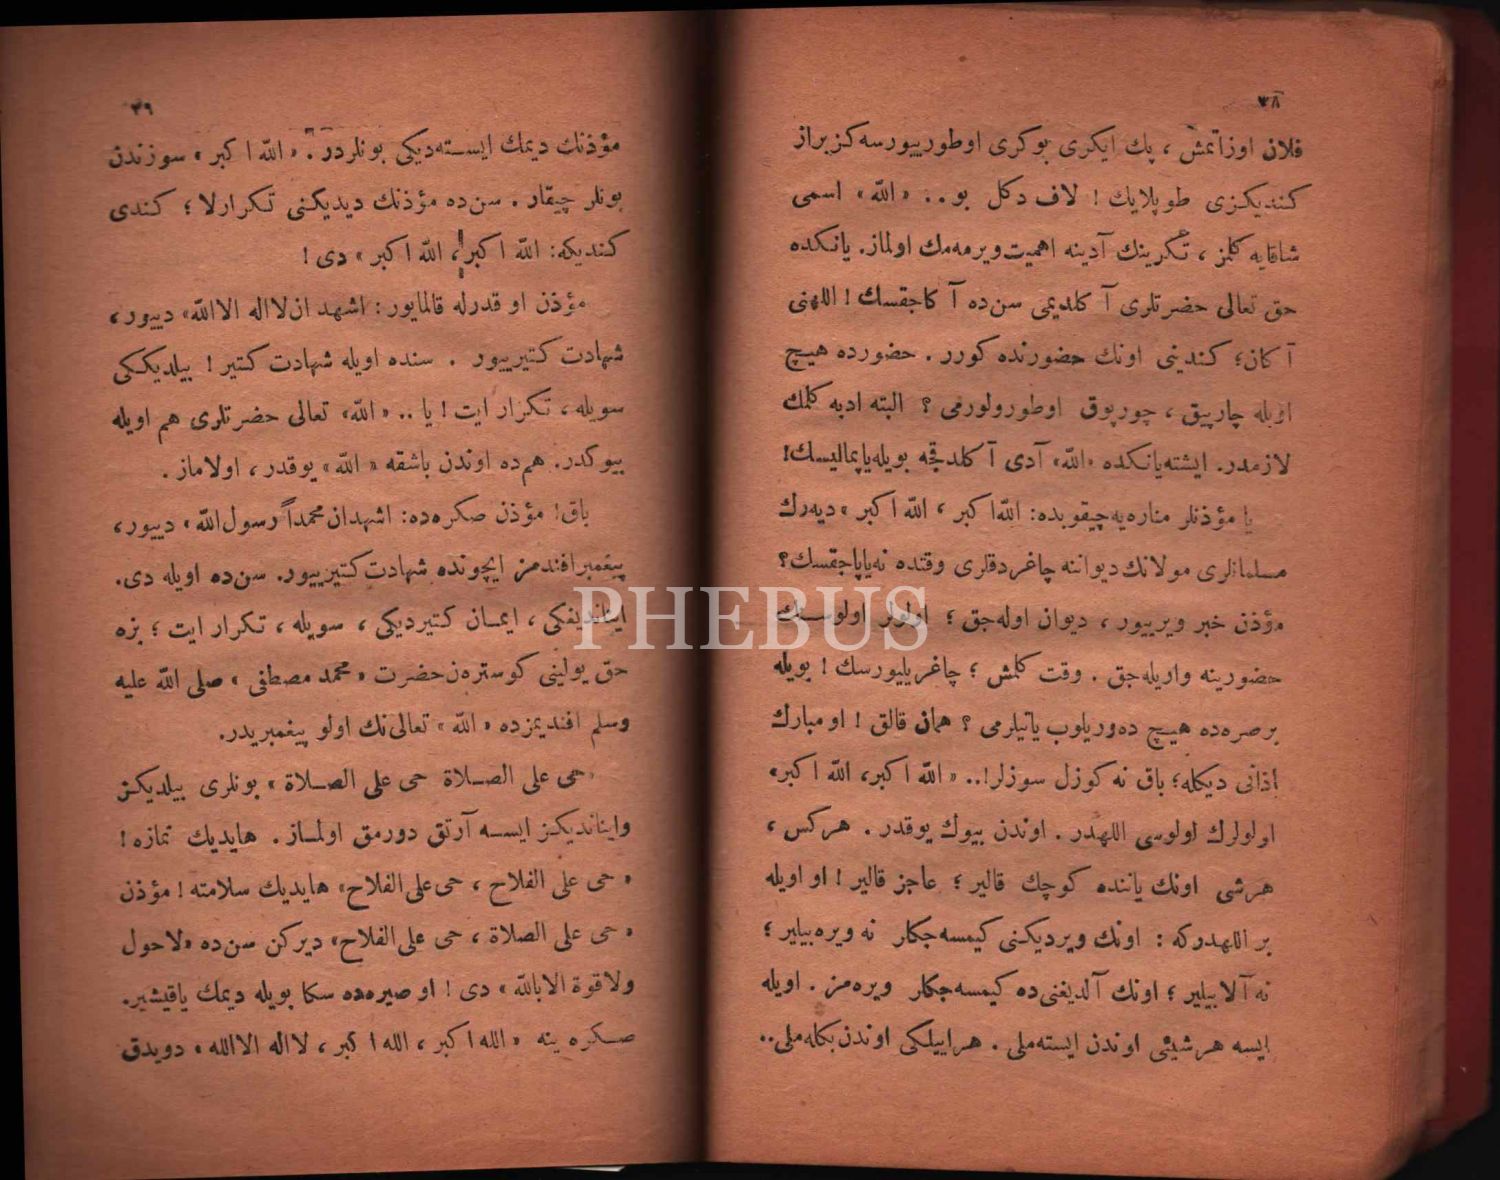 ٣٨
فلان اوزاتمش ، پك ايكرى بوكرى اوطورييورسه‌كز براز
كنديكزى طوپلايك ! لاف دكل بو . . «الله» اسمى
شاقايه كلمز ، تكرينك آدينه اهميت ويرمه‌مك اولماز . يانكده
حق تعالى حضرتلرى آ كلديمى سن ده آ كاجقسك ! اللهنى
آ كان؛ كندينى اونك حضورنده كورر . حضورده هيچ
اويله چارپيق ، چورپوق اوطورولورمى ؟ البته ادبه كلمك
لازمدر . ايشته يانكده «الله» آدى آ كلدقجه بويله ياپماليسك !
يا مؤذنلر مناره‌يه چيقوبده : الله اكبر ، الله اكبر » ديه‌رك
مسلمانلرى مولانك ديواننه چاغردقلرى وقتنده نه ياپاجقسك ؟
مؤذن خبر ويرييور ، ديوان اوله‌جق ؛ اولولر اولوسنك
حضورينه واريله‌جق . وقت كلمش ؛ چاغريلييورسك ! بويله
برصره‌ده هيچ ده‌وريلوب ياتيلرمى ؟ همان قالق ! او مبارك
اذانى ديكله؛ باق نه كوزل سوزلر !.. « الله اكبر ، الله اكبر»
اولولرك اولوسى اللهدر . اوندن بيوك يوقدر . هركس ،
هرشى اونك ياننده كوچك قالير ؛ عاجز قالير ! او اويله
بر اللهدركه : اونك ويرديكنى كيمسه‌جكلر نه ويره‌بيلير ؛
نه آلابيلير ؛ اونك آلديغنى ده كيمسه‌جكلر ويره‌مز . اويله
ايسه هرشيئى اوندن ايسته‌ملى . هر اييلكى اوندن بكله‌ملى ..
٣٩
مؤذنك ديمك ايسته‌ديكى بونلردر . « الله اكبر » سوزندن
بونلر چيقار . سن ده مؤذنك ديديكنى تكرارلا ؛ كندى
كنديكه : الله اكبر ، الله اكبر » دى !
مؤذن او قدرله قالمايور : اشهد ان لااله الاالله» دييور ،
شهادت كتيرييور . سنده اويله شهادت كتير ! بيلديككى
سويله ، تكرار ايت ! يا .. «الله» تعالى حضرتلرى هم اويله
بيوكدر . هم ده اوندن باشقه « الله» يوقدر ، اولاماز .
باق ! مؤذن صكره‌ده : اشهدان محمداً رسول الله » دييور ،
پيغمبر افندمز ايچونده شهادت كتيرييور . سن ده اويله دى .
ايناندیغكی ، ايمان كتيرديكى ، سويله ، تكرار ايت ؛ بزه
حق يولينى كوستره‌ن حضرت « محمد مصطفى » صلى الله عليه
وسلم افنديمزده « الله » تعالى نك اولو پيغمبريدر .
«حى على الصلاة حى على الصلاة » بونلرى بيلديكز
وايناندیكز ايسه آرتق دورمق اولماز . هايديك نمازه !
« حى على الفلاح ، حى على الفلاح» هايديك سلامته ! مؤذن
« حى على الصلاة ، حى على الفلاح» ديركن سن ده «لاحول
ولاقوة الابالله » دى ! او صيره‌ده سكا بويله ديمك ياقيشير .
صكره ينه « الله اكبر ، الله اكبر ، لااله الاالله » دويدق
PHEBUS